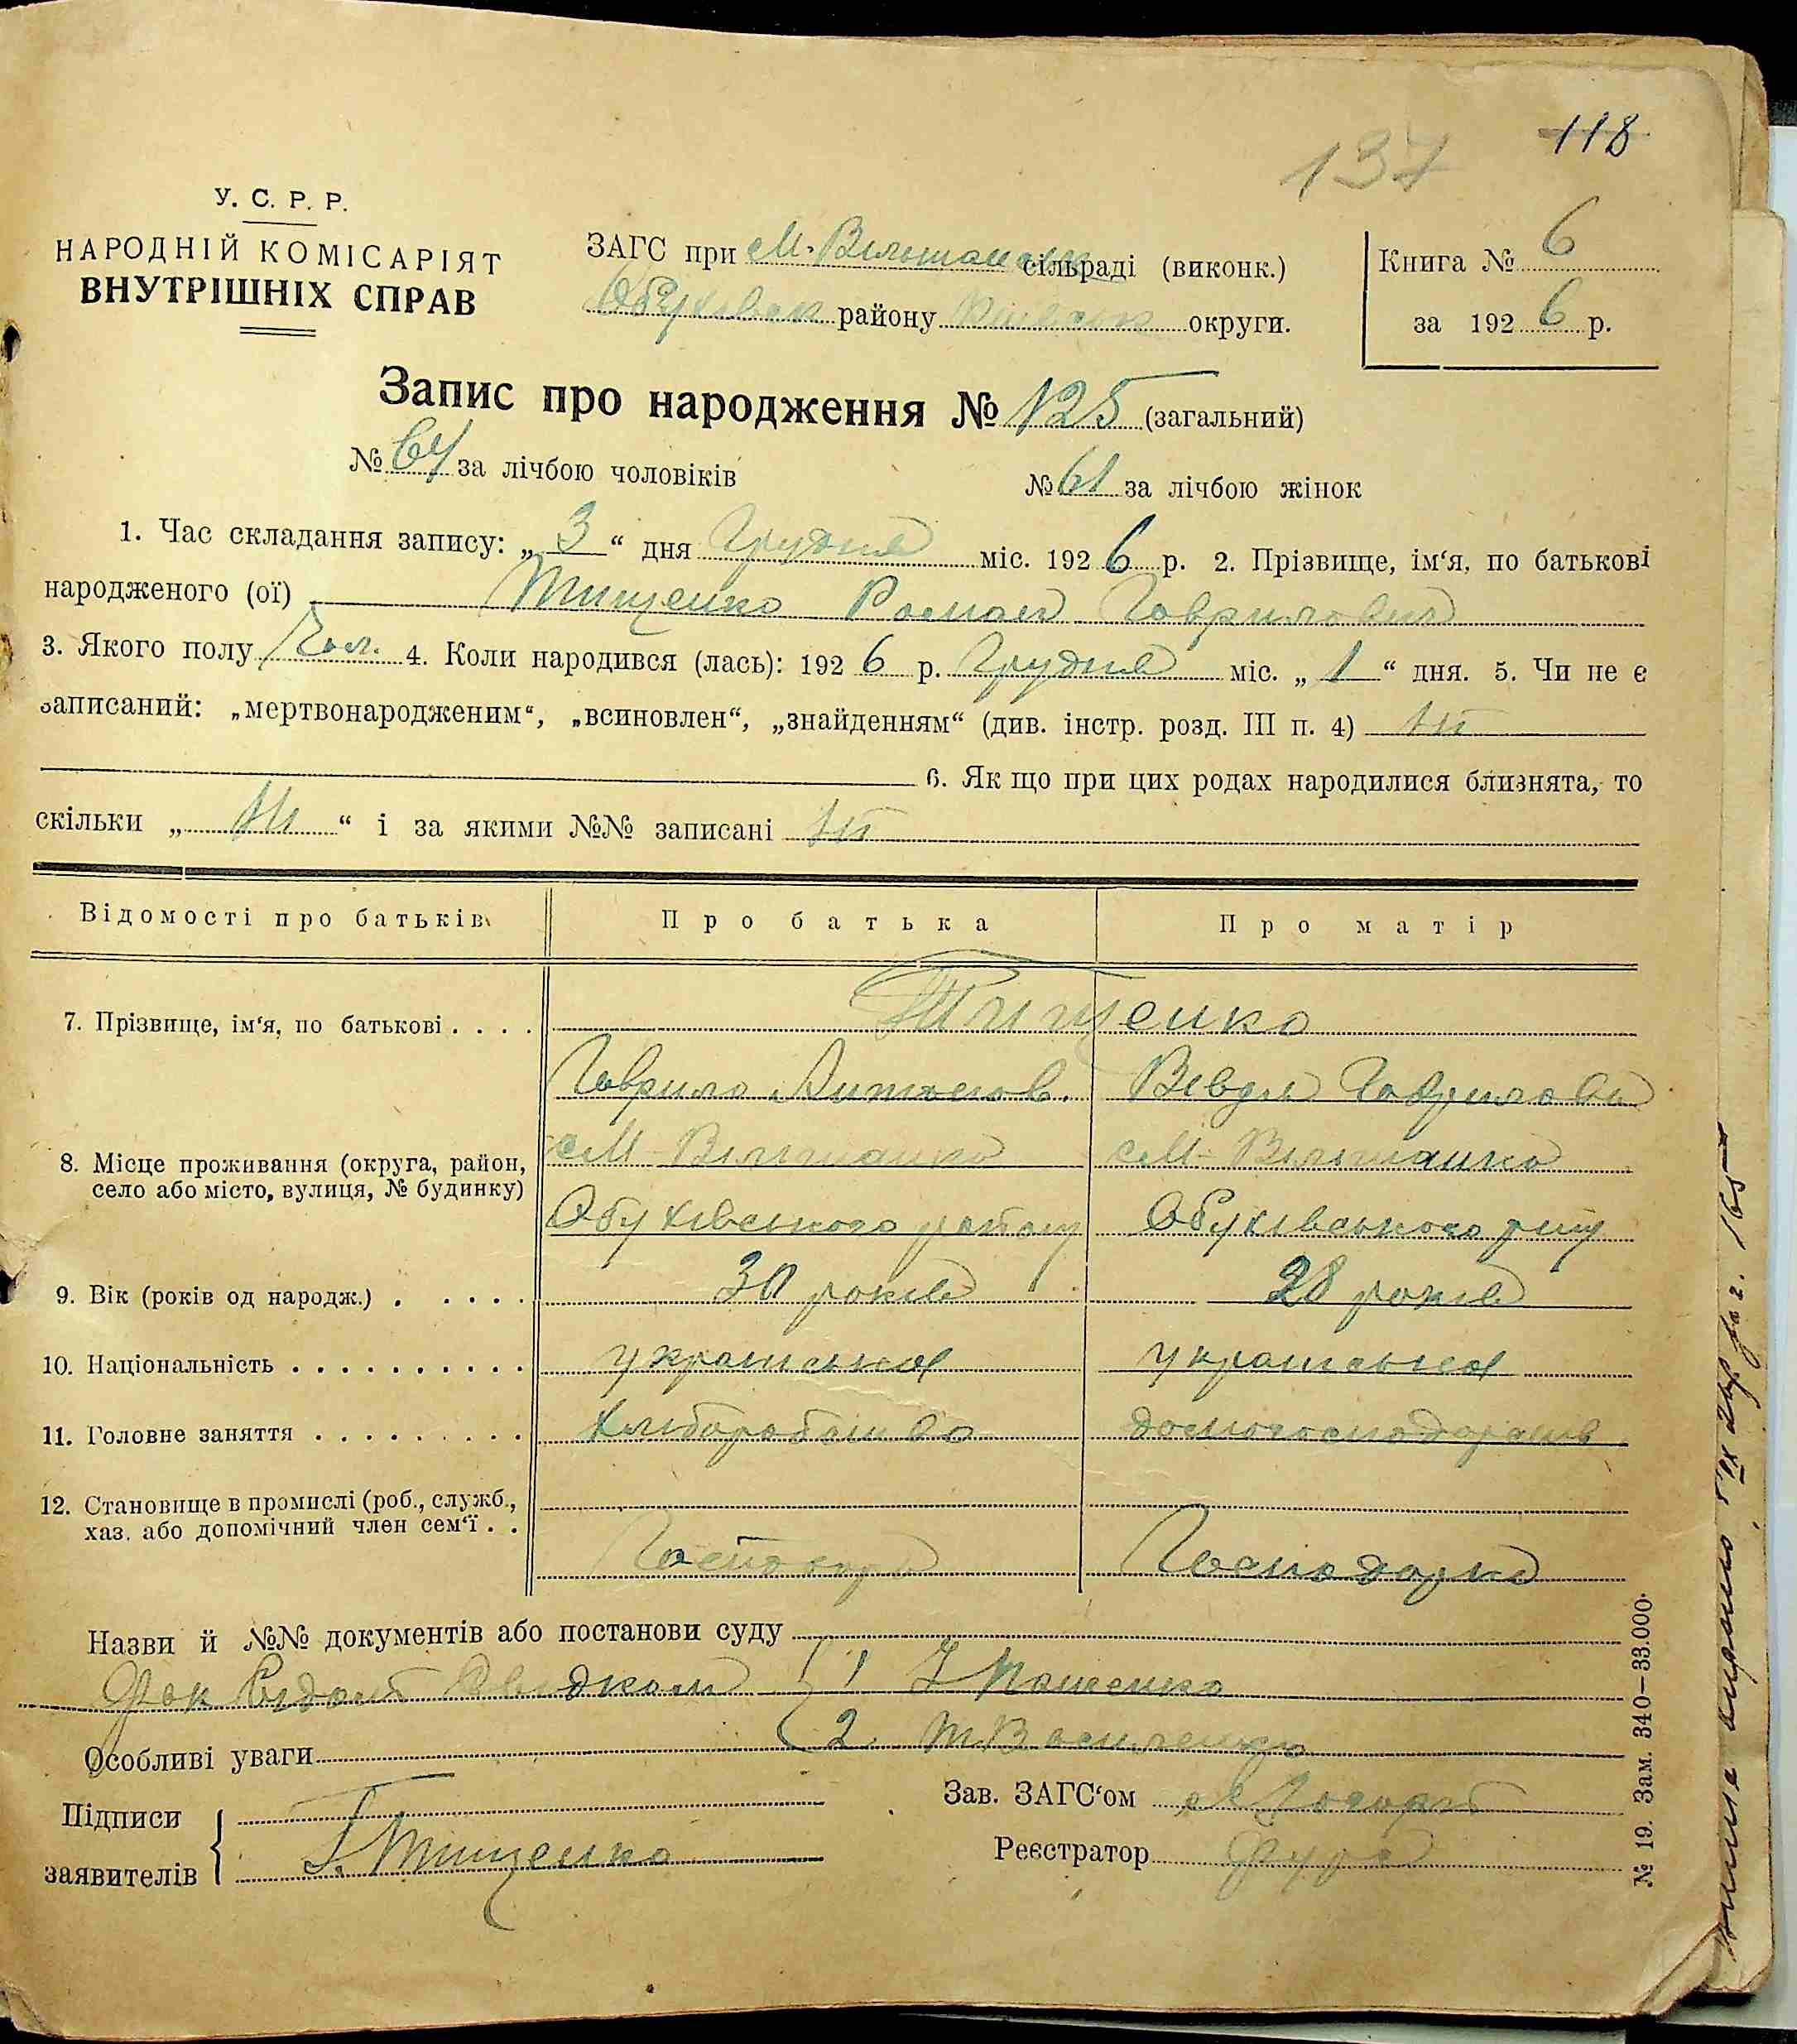 118
137
У. С. Р. Р.
НАРОДНІЙ КОМІСАРІЯТ
ВНУТРІШНІХ СПРАВ
ЗАГС при М-Вільшанськ сільраді (виконк.)
Обухівськ району Київськ округи.
Книга № 6
за 1926 р.
Запис про народження № 125 (загальний)
№ 64 за лічбою чоловіків
№ 61 за лічбою жінок
1. Час складання запису: „3“ дня Грудня міс. 1926 р. 2. Прізвище, ім‘я, по батькові
народженого (ої) Тищенко Роман Гаврилович
3. Якого полу Чол. 4. Коли народився (лась): 1926 р. Грудня міс. „1“ дня. 5. Чи не є
записаний: „мертвонародженим“, „всиновлен“, „знайденням“ (див. інстр. розд. III п. 4) Ні
6. Як що при цих родах народилися близнята, то
скільки „Ні“ і за якими №№ записані Ні
Відомості про батьків
Про батька
Про матір
7. Прізвище, ім‘я, по батькові . . . .
Тищенко
Гаврило Антонов.
Вівдя Гаврилови
8. Місце проживання (округа, район,
село або місто, вулиця, № будинку)
с М-Вільшанка
с М-Вільшанка
Обухівського району
Обухівського р-ну
9. Вік (років од народж.) . . . . .
30 років
28 років
10. Національність . . . . . . . . . .
українська
українська
11. Головне заняття . . . . . . . . .
хліборобство
домогосподарств
12. Становище в промислі (роб., служб.,
хаз. або допомічний член сем‘ї . .
Господар
Господарка
Назви й №№ документів або постанови суду
1
2. Василенко
Особливі уваги
Підписи
заявителів
Г. Тищенко
Зав. ЗАГС‘ом
Реєстратор
№ 19. Зам. 340—33.000.